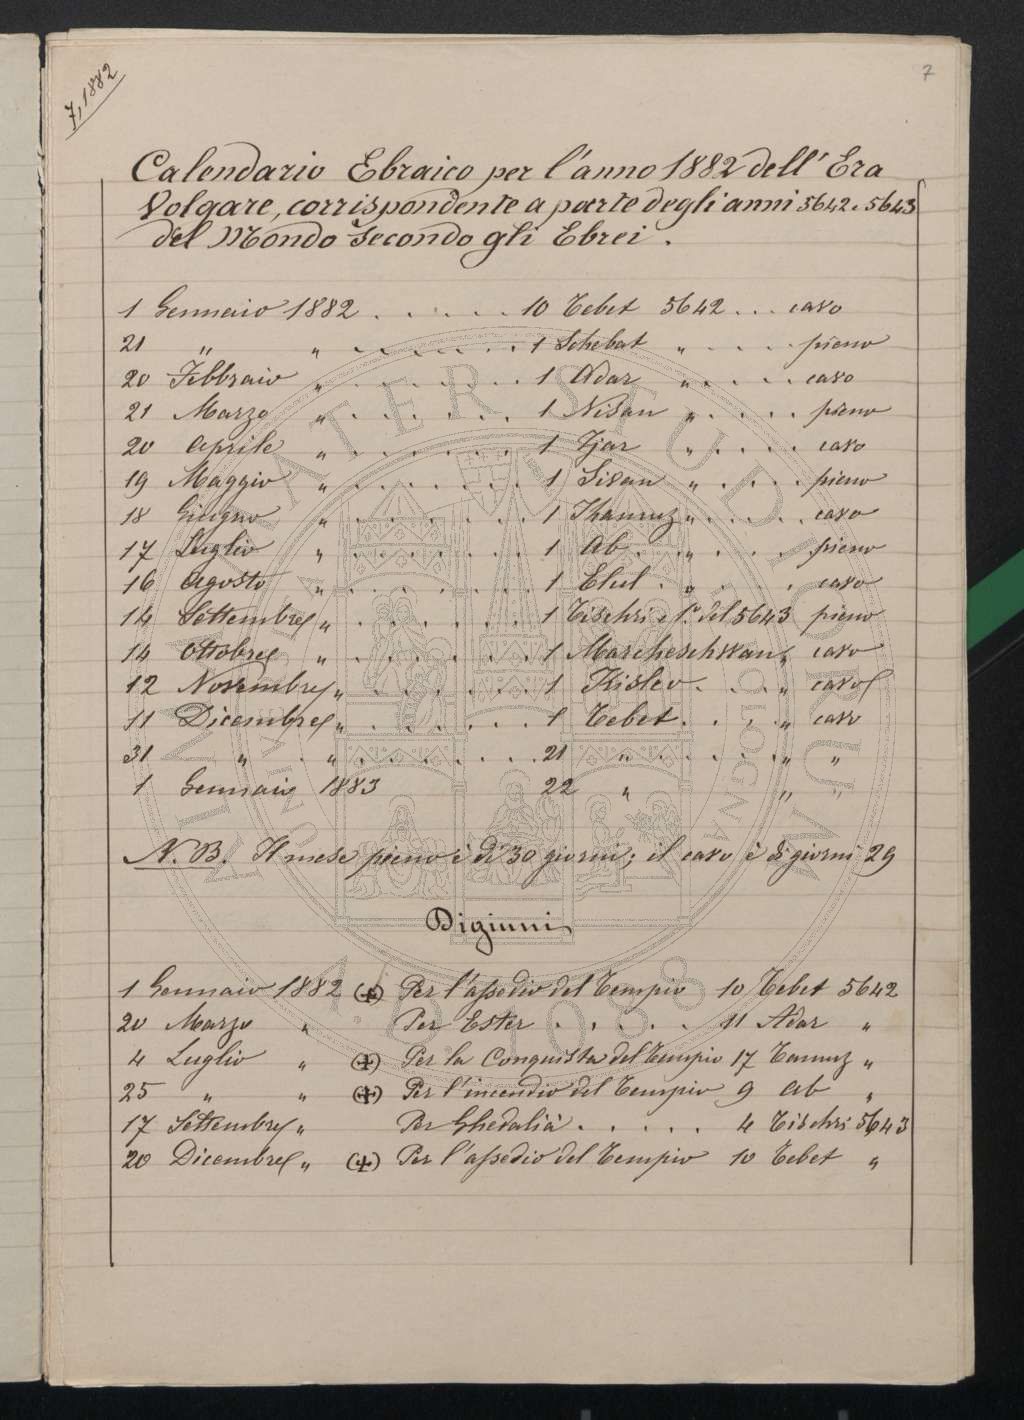 7, 1882
7
Calendario Ebraico per l'anno 1882 dell'Era
Volgare, corrispondente a parte degli anni 5642 e 5643
del Mondo secondo gli Ebrei.
1 Gennaio 1882 . . . . . 10 Tebet 5642 . . . cavo
21 " " . . . . . . . 1 Schebat " . . . . pieno
20 Febbraio " . . . . . . . 1 Adar " . . . . cavo
21 Marzo " . . . . . . . 1 Nisan " . . . . pieno
20 Aprile " . . . . . . . 1 Ijar " . . . . cavo
19 Maggio " . . . . . . . 1 Sivan " . . . . pieno
18 Giugno " . . . . . . . 1 Thamuz " . . . . cavo
17 Luglio " . . . . . . . 1 Ab . . " . . . . pieno
16 Agosto " . . . . . . . 1 Elul . " . . . . cavo
14 Settembre " . . . . . . 1 Tischri 1° del 5643 pieno
14 Ottobre " . . . . . . . 1 Marcheschvan " cavo
12 Novembre " . . . . . . 1 Kislev . . . " cavo
11 Dicembre " . . . . . . 1 Tebet . . . . " cavo
31 " . " . . . . . . . . 21 " . . . . . " "
1 Gennaio 1883 22 " " "
N. B. Il mese pieno è di 30 giorni; il cavo è di giorni 29
Digiuni
1 Gennaio 1882 (+) Per l'assedio del Tempio 10 Tebet 5642
20 Marzo " Per Ester . . . . . 11 Adar "
4 Luglio " (+) Per la Conquista del Tempio 17 Tamuz "
25 " " (+) Per l'incendio del Tempio 9 Ab "
17 Settembre " Per Ghedalià . . . . . 4 Tischri 5643
20 Dicembre " (+) Per l'assedio del Tempio 10 Tebet "
ALMA MATER STUDIORUM
A.D. 1088